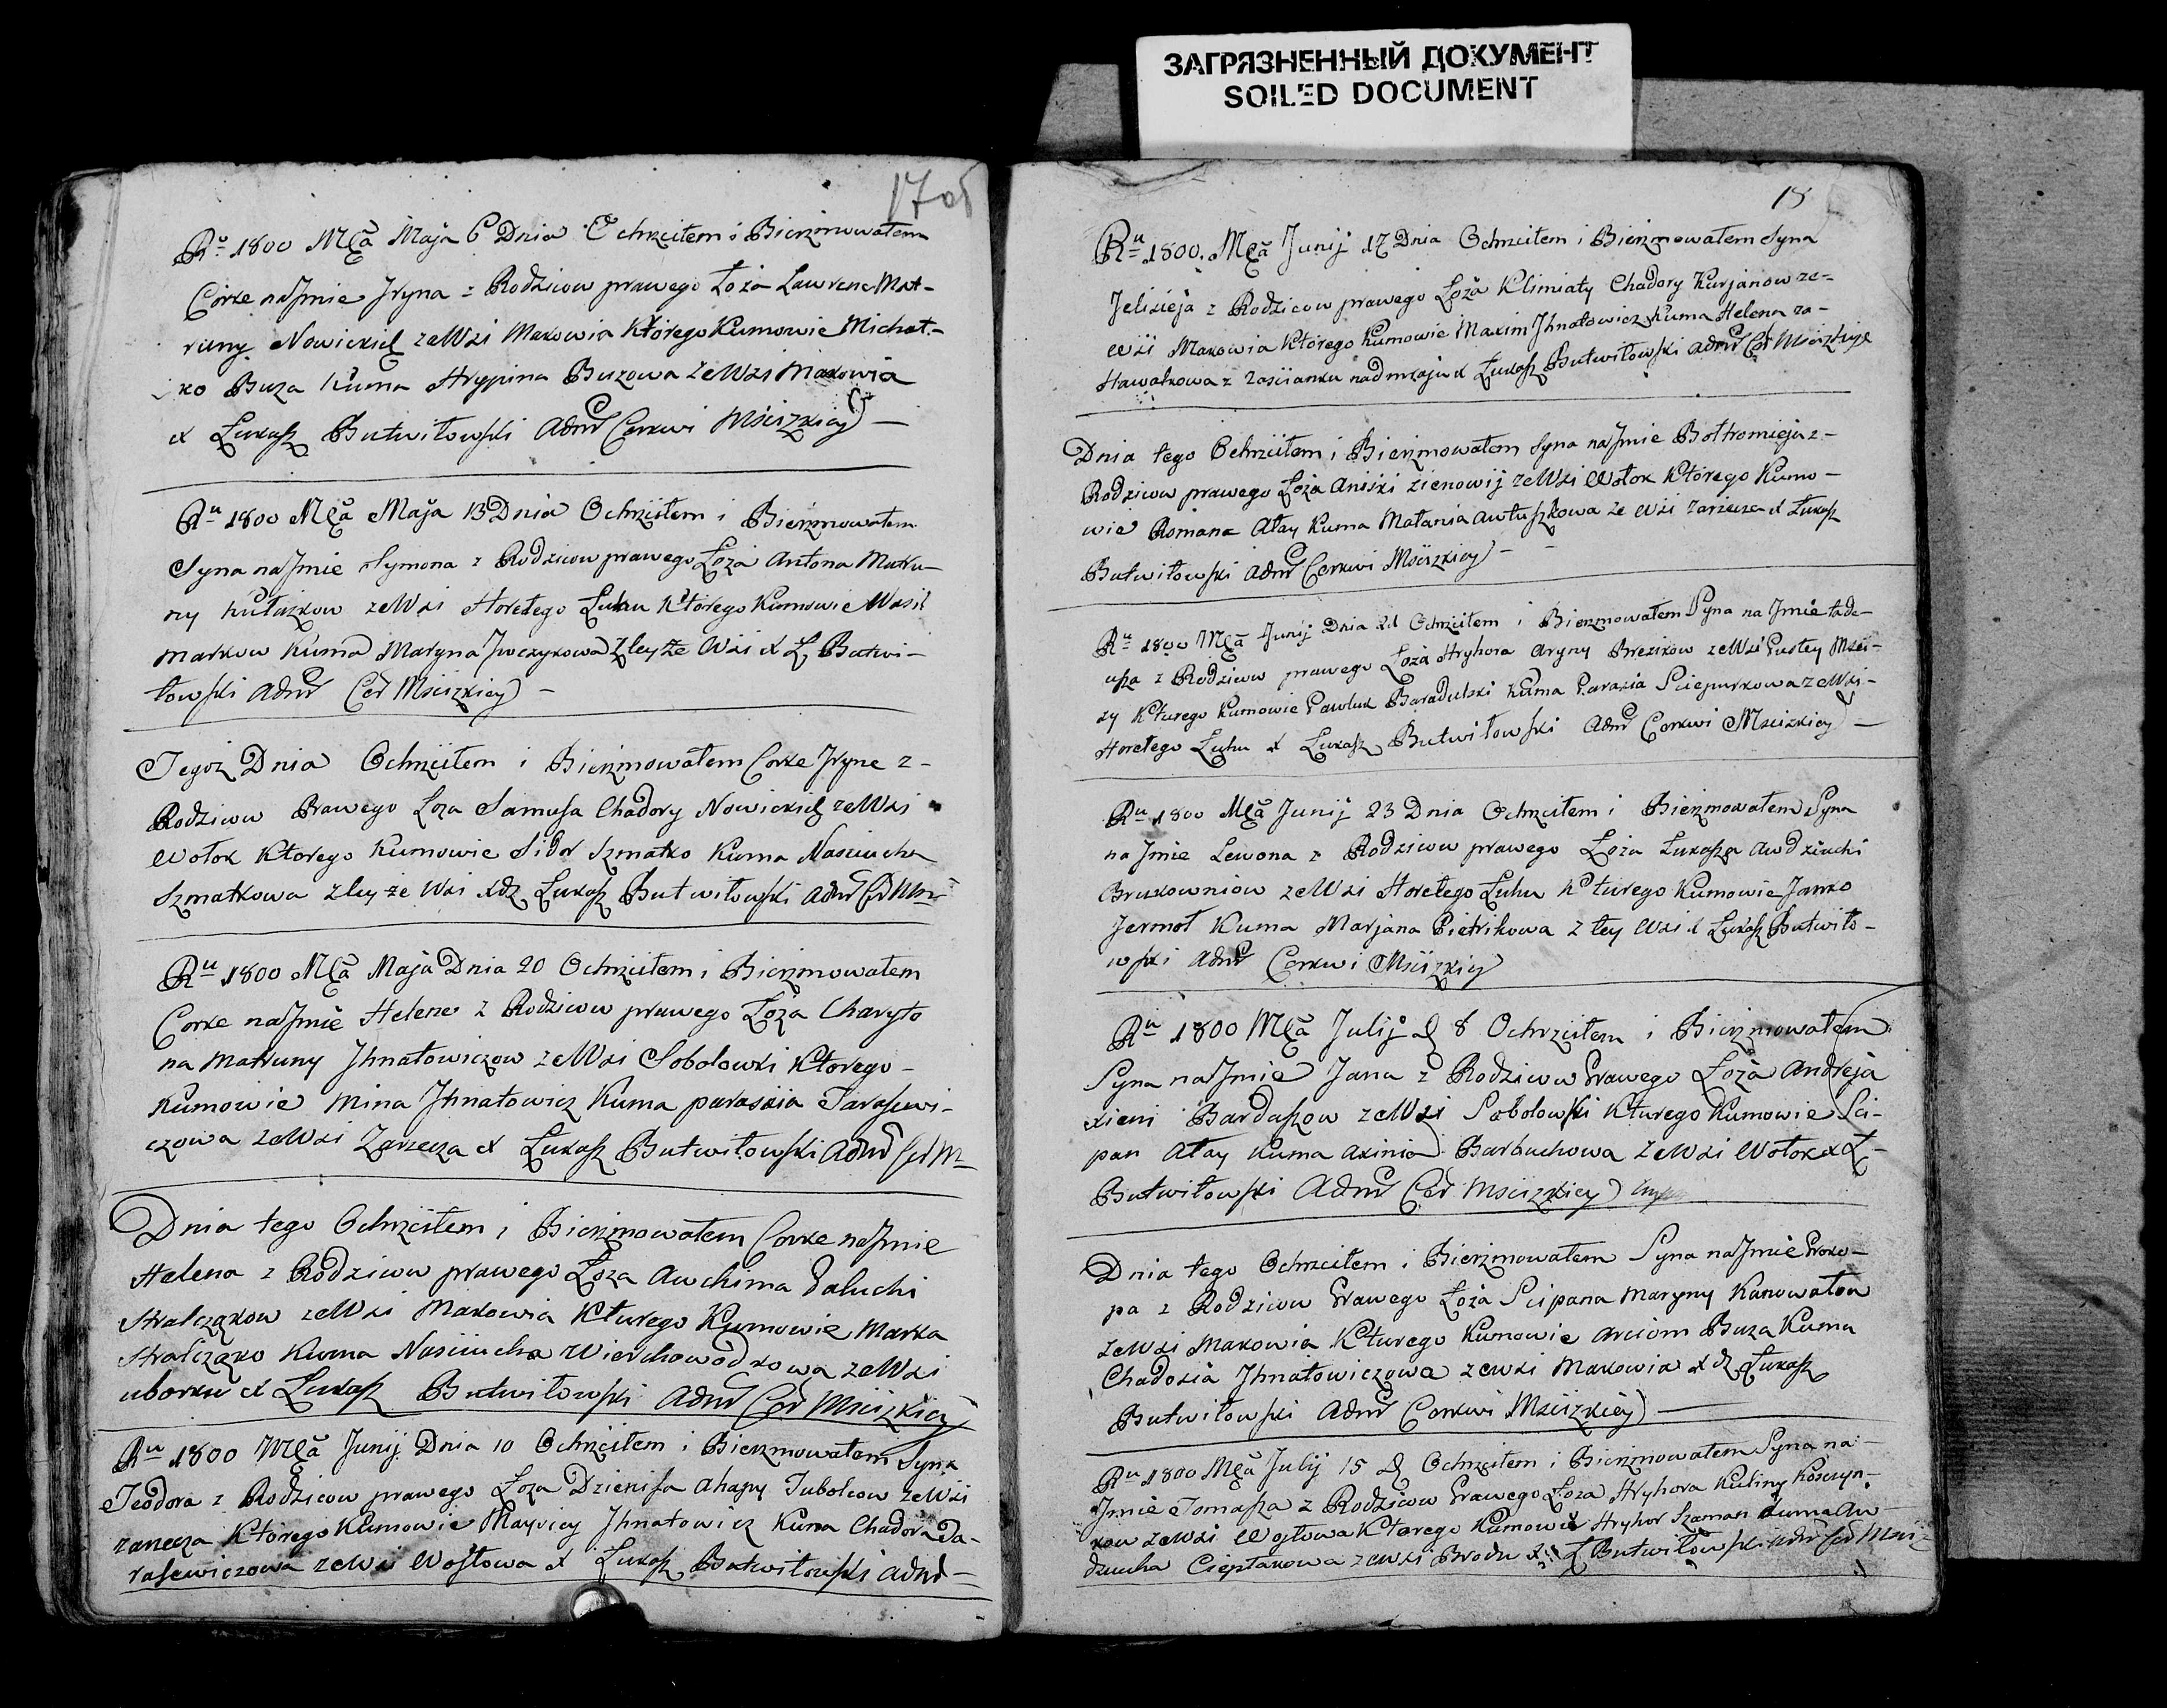 ЗАГРЯЗНЕННЫЙ ДОКУМЕНТ
SOILED DOCUMENT
17об
Ru 1800 Mca Maja 6 Dnia Ochrzciłem i Bierzmowałem
Córke na Jmie Jryna z Rodzicow prawego Łoża Lawrena Mat-
runy Nowickich ze Wsi Makowia Którego Kumowie Michał-
ko Buza Kuma Hrypina Buzowa ze Wsi Makowia
X Łukasz Butwiłowski Adm Cerkwi Msciżkiey
Ru 1800 Mca Maja 13 Dnia Ochrzciłem i Bierzmowałem
Syna na Jmie Symona z Rodzicow prawego Łoża Antona Matru-
ny ze Wsi Horełego Łuhu Którego Kumowie Wasil
Markow Kuma Maryna z tey że Wsi X Ł Butwi-
łowski Adm Cer Msciżkiey
Tegoż Dnia Ochrzciłem i Bierzmowałem Corke Jryne z
Rodzicow Prawego Loza Samusa Chadory Nowickich ze Wsi
Wołok Ktorego Kumowie Sidor Szmatko Kuma Nasciucha
Szmatkowa z tey że Wsi Xdz Łukasz Butwiłowski Adm Cer Msci
Ru 1800 Mca Maja Dnia 20 Ochrzciłem i Bierzmowałem
Corke na Jmie Helene z Rodzicow prawego Łoża Charyto
na Matruny Jhnatowiczow ze Wsi Sobolowki Ktorego
Kumowie Mina Jhnatowicz Kuma paraskia Tarasewi-
czowa ze Wsi Zarzecza X Łukasz Butwiłowski Adm Cer M
Dnia tego Ochrzciłem i Bierzmowałem Corke na Jmie
Helena z Rodzicow prawego Łoza Awchima Paluchi
Hralczakow ze Wsi Makowia Kturego Kumowie Marka
Hralczako Kuma Nasciucha Wierchowodkowa ze Wsi
uborku X Łukasz Butwiłowski Adm Cer Msciżkiey
Ru 1800 Mca Junij Dnia 10 Ochrzciłem i Bierzmowałem Syna
Teodora z Rodzicow prawego Loza Dzienisa Ahapy Tubolcow ze Wsi
zarecza Którego Kumowie Jhnatowicz Kuma Chadora Da-
rasewiczowa ze Wsi Wostowa X Łukasz Butwiłowski Adm
18
Ru 1800. Mca Junij 17 Dnia Ochrzciłem i Bierzmowałem Syna
Jelisieja z Rodzicow prawego Łoża Klimiaty Chadory Kurjanow ze-
Wsi Makowia Którego Kumowie Maxim Jhnatowicz Kuma Helena za-
Hawatkowa z zascianku X Łukasz Butwiłowski Adm Cer Msciżkiye
Dnia tego Ochrzciłem i Bierzmowałem Syna na Jmie Bołtromieja z
Rodzicow prawego Łoża Aniski zienowij ze Wsi Wołok Którego Kumo-
wie Romana Ałay Kuma Małania Awłuszkowa ze Wsi zarzecza X Łukasz
Butwiłowski Adm Cerkwi Msciżkiey
Ru 1800 Mca Junij Dnia 21 Ochrzciłem i Bierzmowałem Syna na Jmie tade-
usza z Rodzicow prawego Łoża Hryhora Aryny Brezikow ze Wsi Pustey Msci-
zy Kturego Kumowie Pawluk Baradulski Kuma Parasia Sciepurkowa ze Wsi
Horełego Łuhu X Łukasz Butwiłowski Adm Cerkwi Msciżkiey
Ru 1800 Mca Junij 23 Dnia Ochrzciłem i Bierzmowałem Syna
na Jmie Lewona z Rodzicow prawego Łoża Łukasza Awdziuchi
Brukowniow ze Wsi Horełego Łuhu Kturego Kumowie Janko
Jermoł Kuma Marjana Pietrikowa z tey Wsi X Łukasz Butwiło-
wski Adm Cerkwi Msciżkiey
Ru 1800 Mca Julij D 8 Ochrzciłem i Bierzmowałem
Syna na Jmie Jana z Rodzicow Prawego Łoża Andreja
xieni Bardaszow ze Wsi Sobolowki Kturego Kumowie Sci-
pan Ałay Kuma Axinia Barbuchowa ze Wsi Wołok X Ł
Butwiłowski Adm Cer Msciżkiey
Dnia tego Ochrzciłem i Bierzmowałem Syna na Jmie Proko-
pa z Rodzicow Prawego Łoża Scipana Maryny Kanowałow
ze Wsi Makowia Kturego Kumowie Arciom Buza Kuma
Chadosia Jhnatowiczowa ze wsi Makowia X dz Łukasz
Butwiłowski Adm Cerkwi Msciżkiey
Ru 1800 Mca Julij 15 D Ochrzciłem i Bierzmowałem Syna na
Jmie Tomasza z Rodzicow Prawego Łoza Hryhora Kuliny Kosczyn-
kow ze Wsi Wostowa Kturego Kumowie Hryhor Szaman Kuma Aw
dziucha Cieplakowa ze wsi Brodu X Ł Butwiłowski Adm Cer Msci